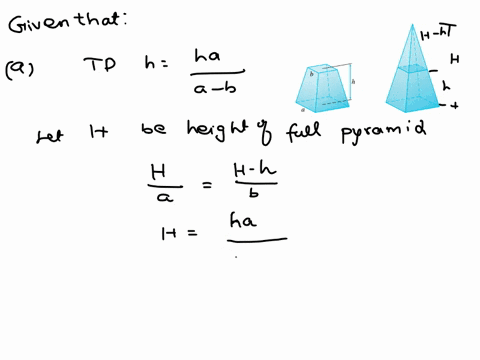 Given that:
(a) TP h = ha / a-b
b
h
a
H-h
H
h
Let H be height of full pyramid
H / a = H-h / b
H = ha /